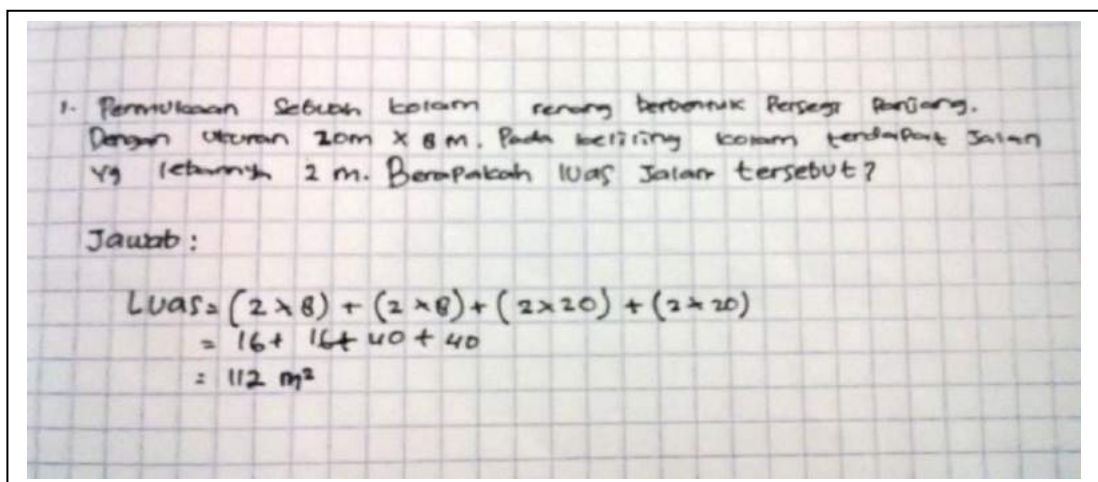 1. Permukaan Sebuah kolam renang berbentuk Persegi Panjang.
Dengan Ukuran 20m × 8 m. Pada keliling kolam terdapat Jalan
yg lebarnya 2 m. Berapakah luas Jalan tersebut?
Jawab:
Luas = (2 × 8) + (2 × 8) + (2 × 20) + (2 × 20)
= 16 + 16 + 40 + 40
= 112 m²